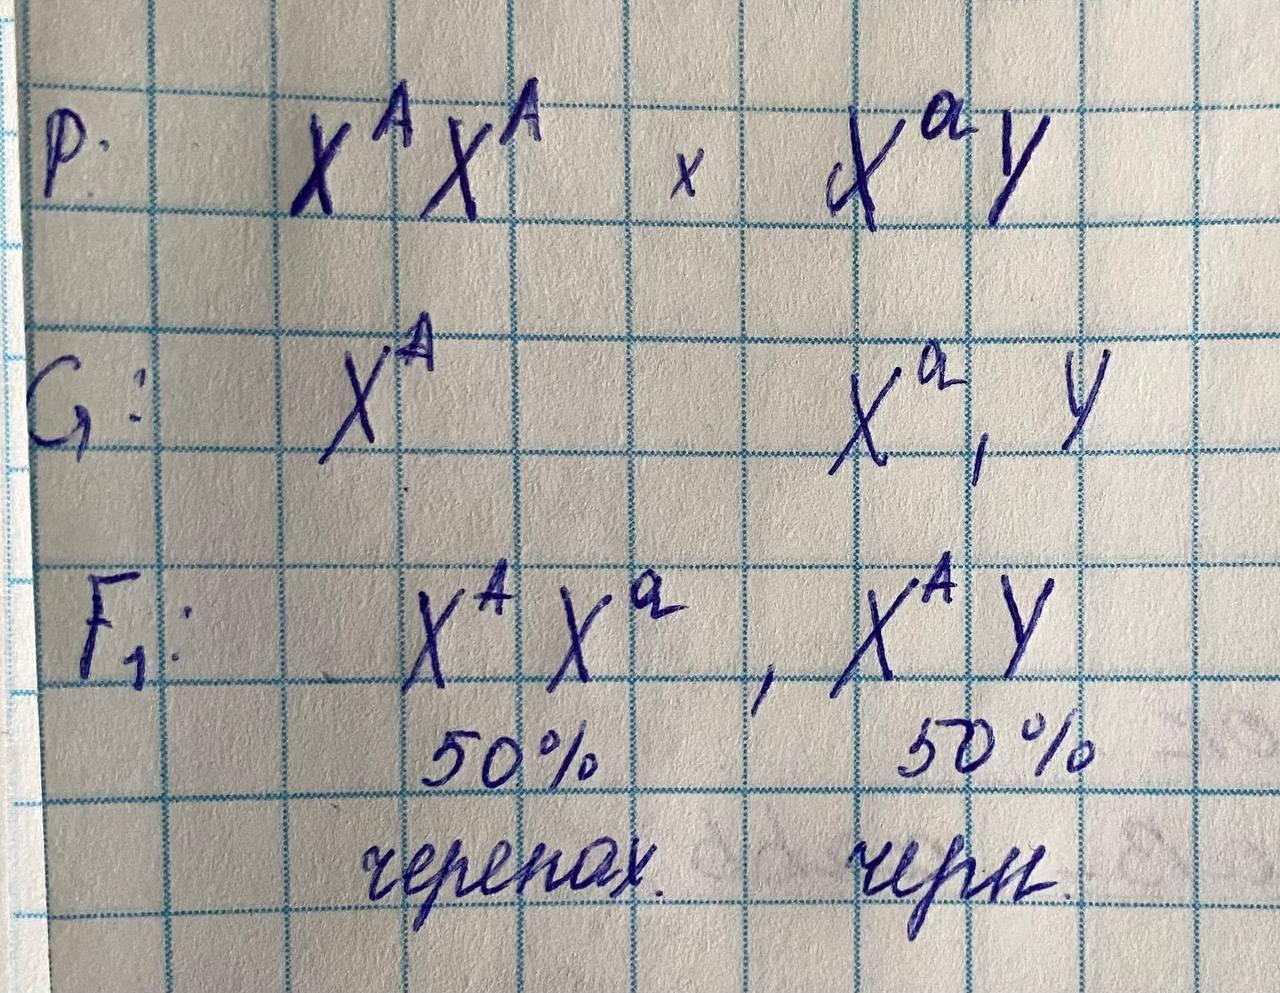 P. X^A X^A x X^a Y
G: X^A X^a, Y
F₁: X^A X^a, X^A Y
50% 50%
черепах. черн.